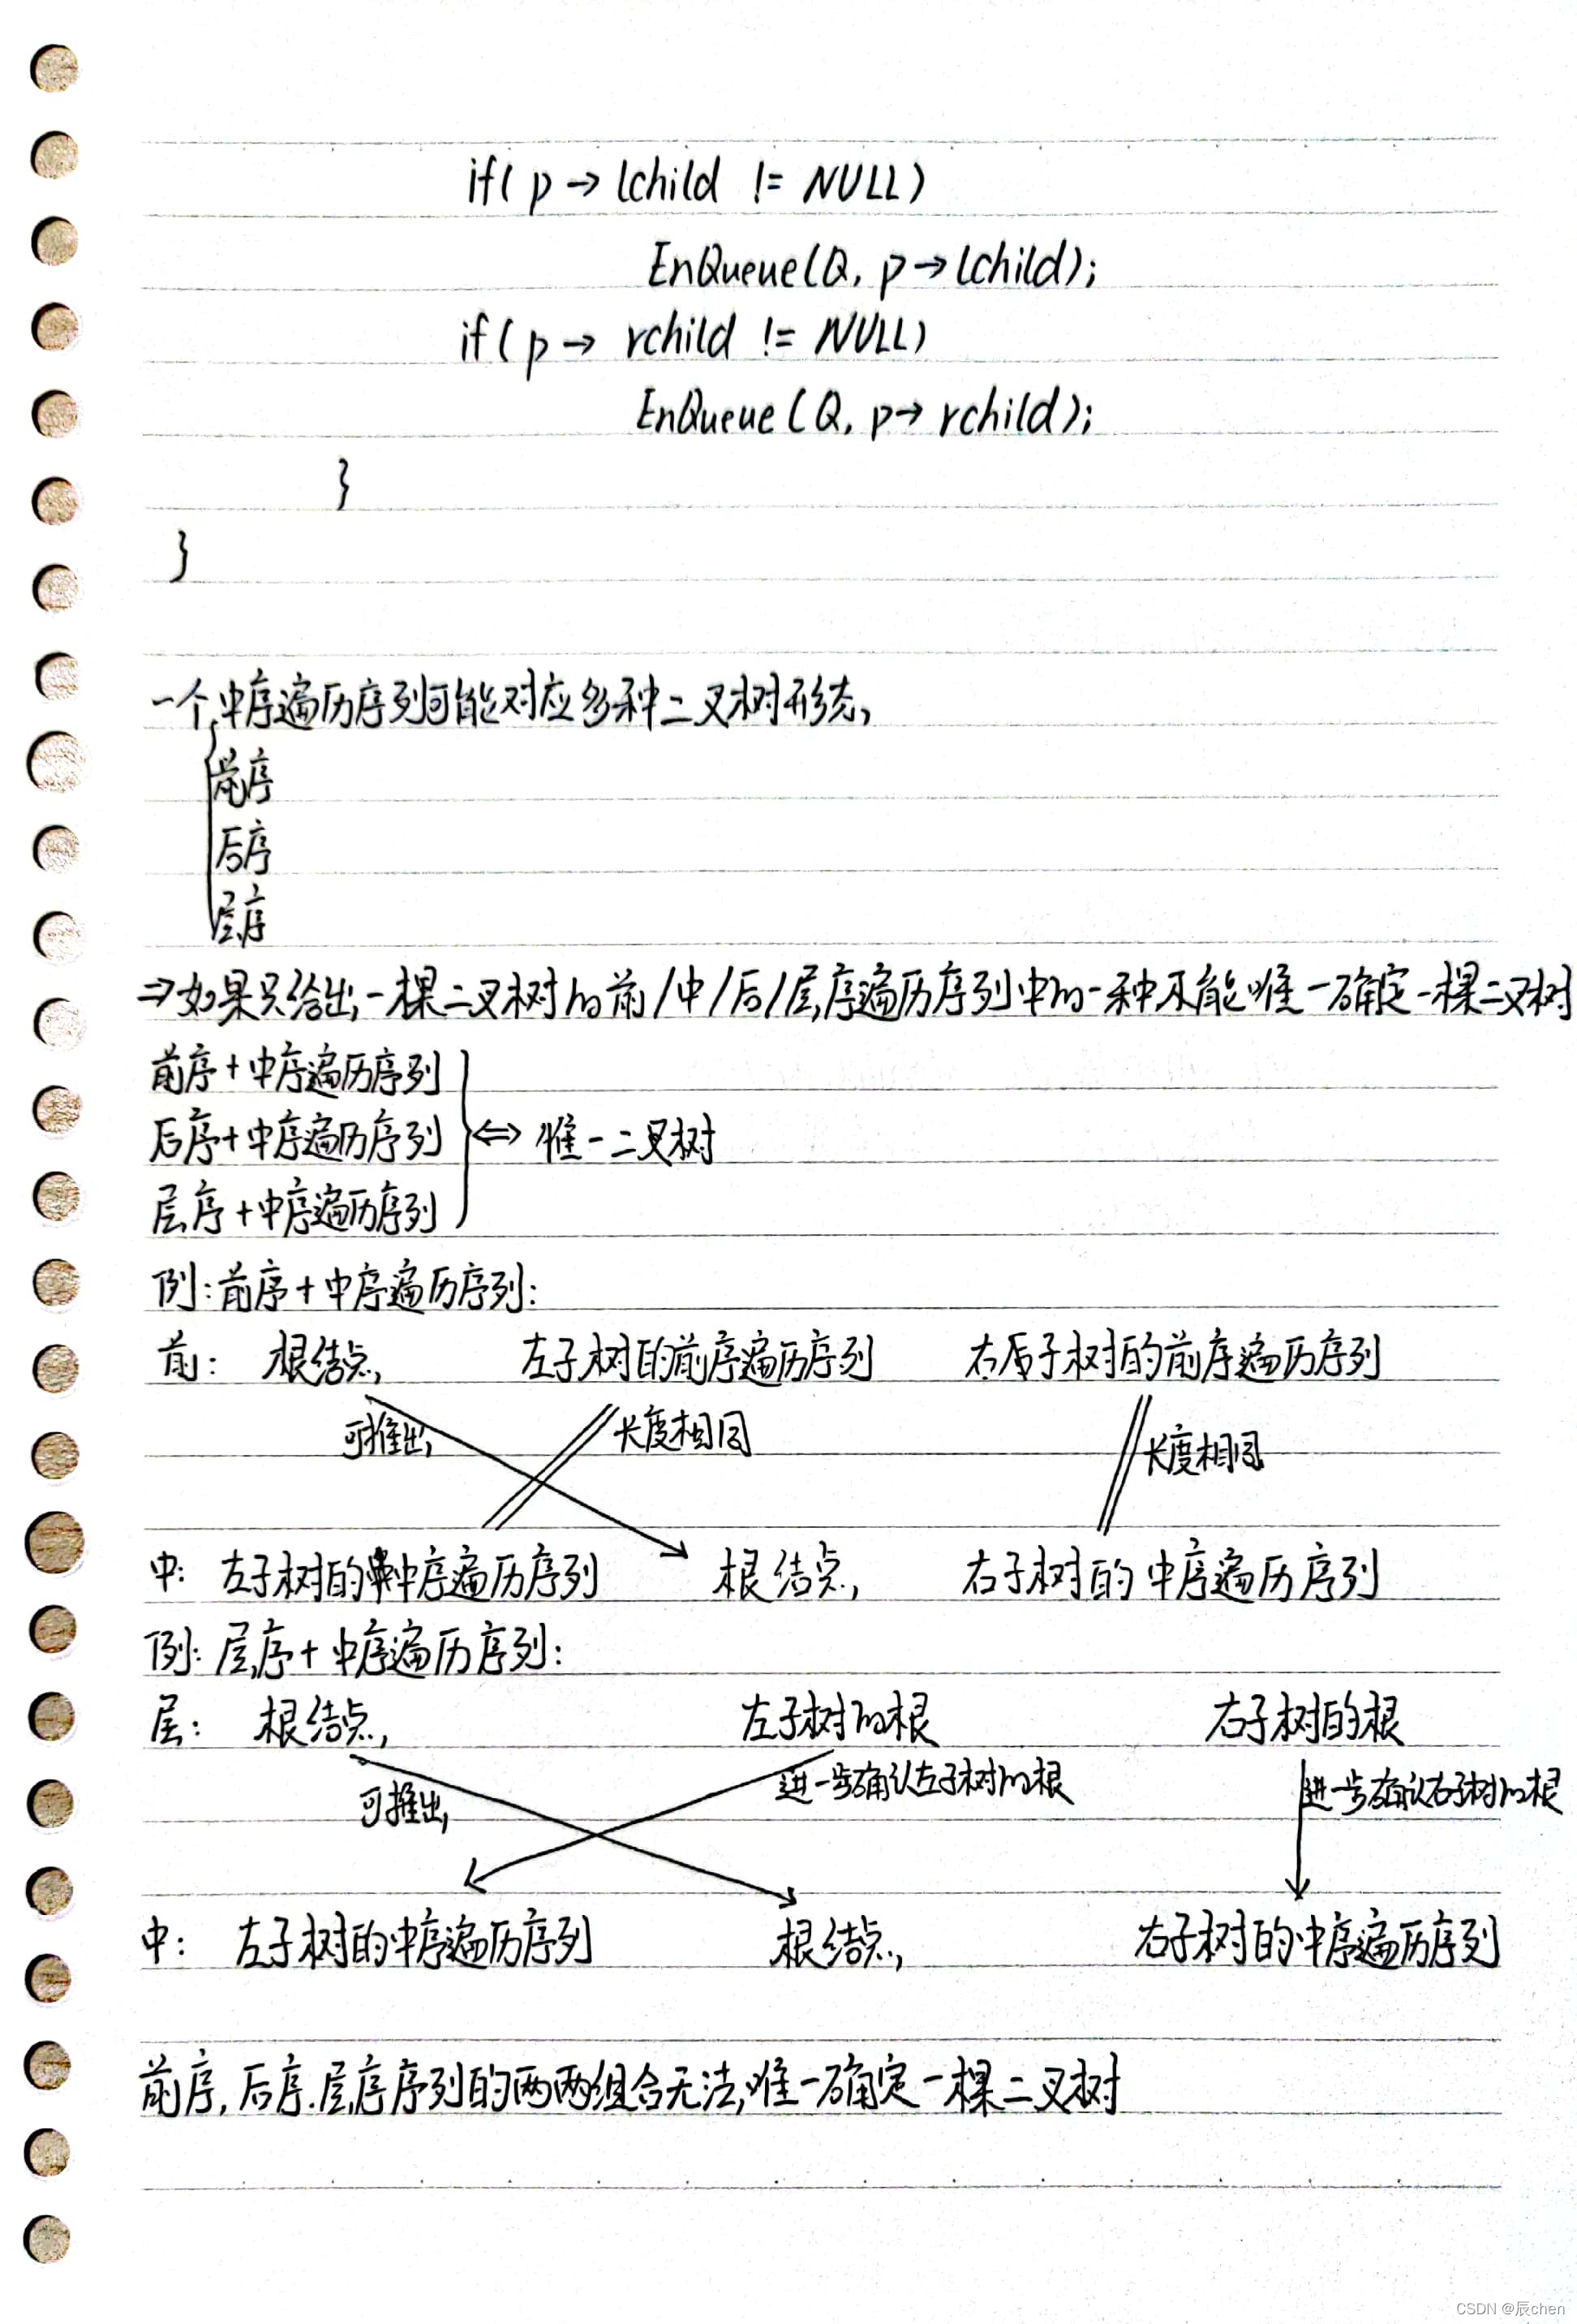 if( p → lchild != NULL)
EnQueue(Q, p → lchild);
if( p → rchild != NULL)
EnQueue(Q, p → rchild);
}
}
一个中序遍历序列可能对应多种二叉树形态,
前序
后序
层序
⇒如果只给出一棵二叉树的前/中/后/层序遍历序列中的一种不能唯一确定一棵二叉树
前序+中序遍历序列
后序+中序遍历序列 ⇔ 惟一二叉树
层序+中序遍历序列
例:前序+中序遍历序列:
前: 根结点, 左子树的前序遍历序列 右子树的前序遍历序列
可推出 长度相同 长度相同
中: 左子树的中序遍历序列 根结点, 右子树的中序遍历序列
例:层序+中序遍历序列:
层: 根结点, 左子树的根 右子树的根
可推出 进一步确认左子树的根 进一步确认右子树的根
中: 左子树的中序遍历序列 根结点, 右子树的中序遍历序列
前序,后序.层序序列的两两组合无法唯一确定一棵二叉树
CSDN @辰chen